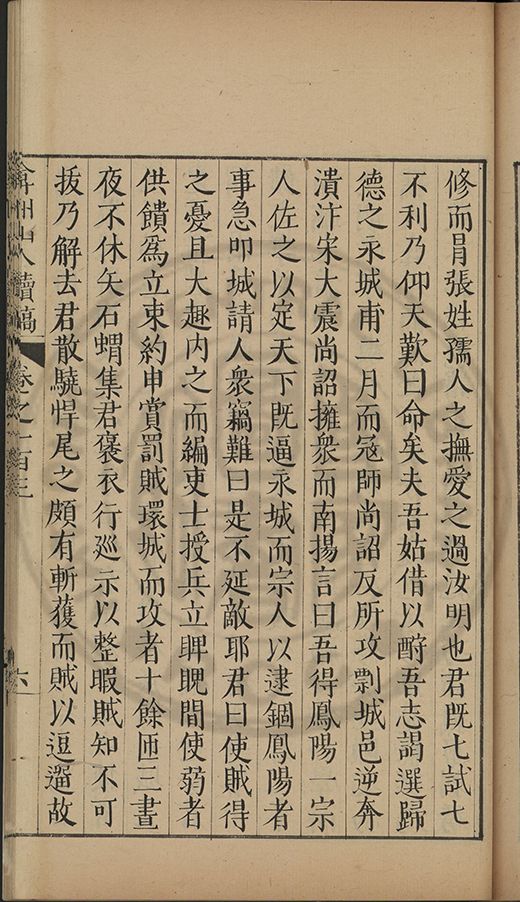 修而冒張姓孺人之撫愛之過汝明也君既七試七
不利乃仰天歎曰命矣夫吾姑借以酧吾志謁選歸
德之永城甫二月而冦師尚詔反所攻剽城邑逆奔
潰汴宋大震尚詔擁衆而南揚言曰吾得鳳陽一宗
人佐之以定天下既逼永城而宗人以逮錮鳳陽者
事急叩城請人衆竊難曰是不延敵耶君曰使賊得
之憂且大趣内之而編吏士授兵立睥睨間使弱者
供饋爲立束約申賞罰賊環城而攻者十餘匝三晝
夜不休矢石蝟集君褒衣行廵示以整暇賊知不可
拔乃解去君散驍悍尾之頗有斬獲而賊以逗遛故
弇州山人續稿 卷之一百三 六